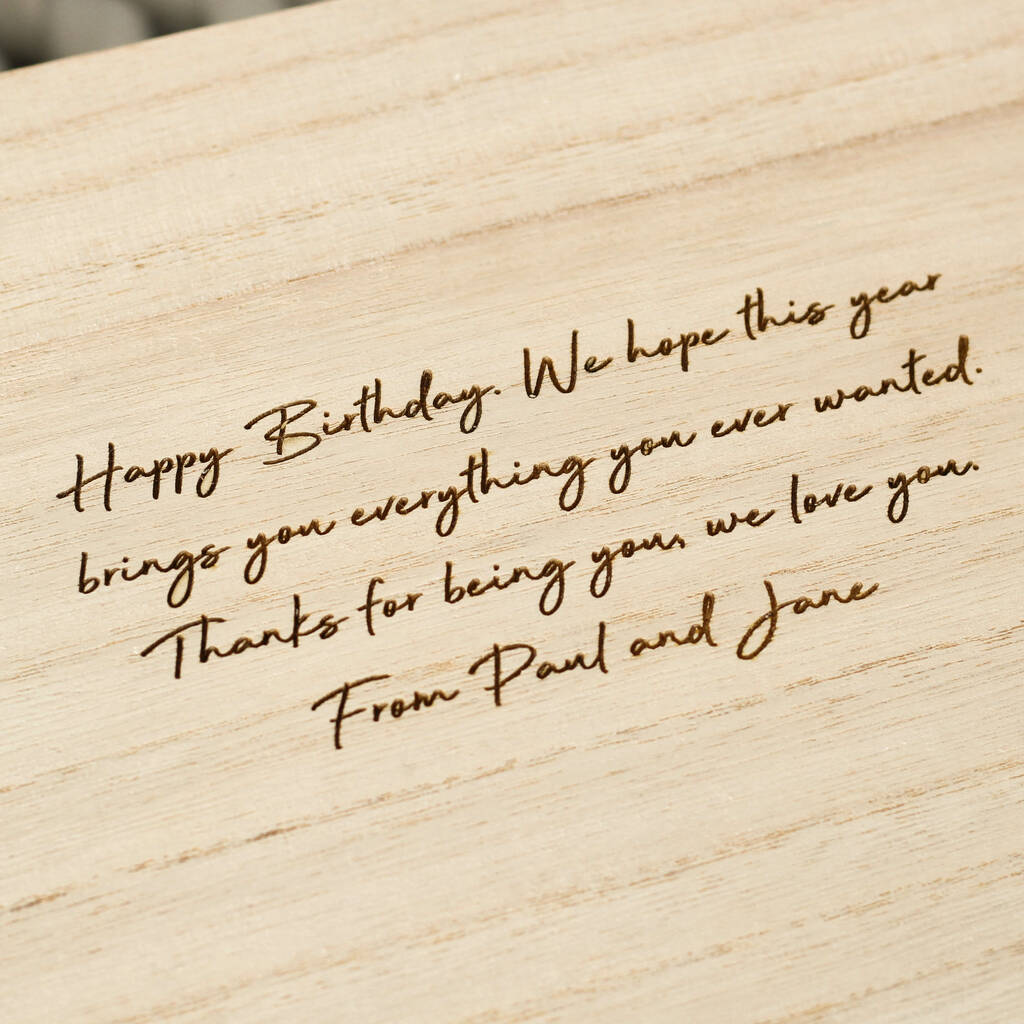 Happy Birthday. We hope this year
brings you everything you ever wanted.
Thanks for being you, we love you.
From Paul and Jane